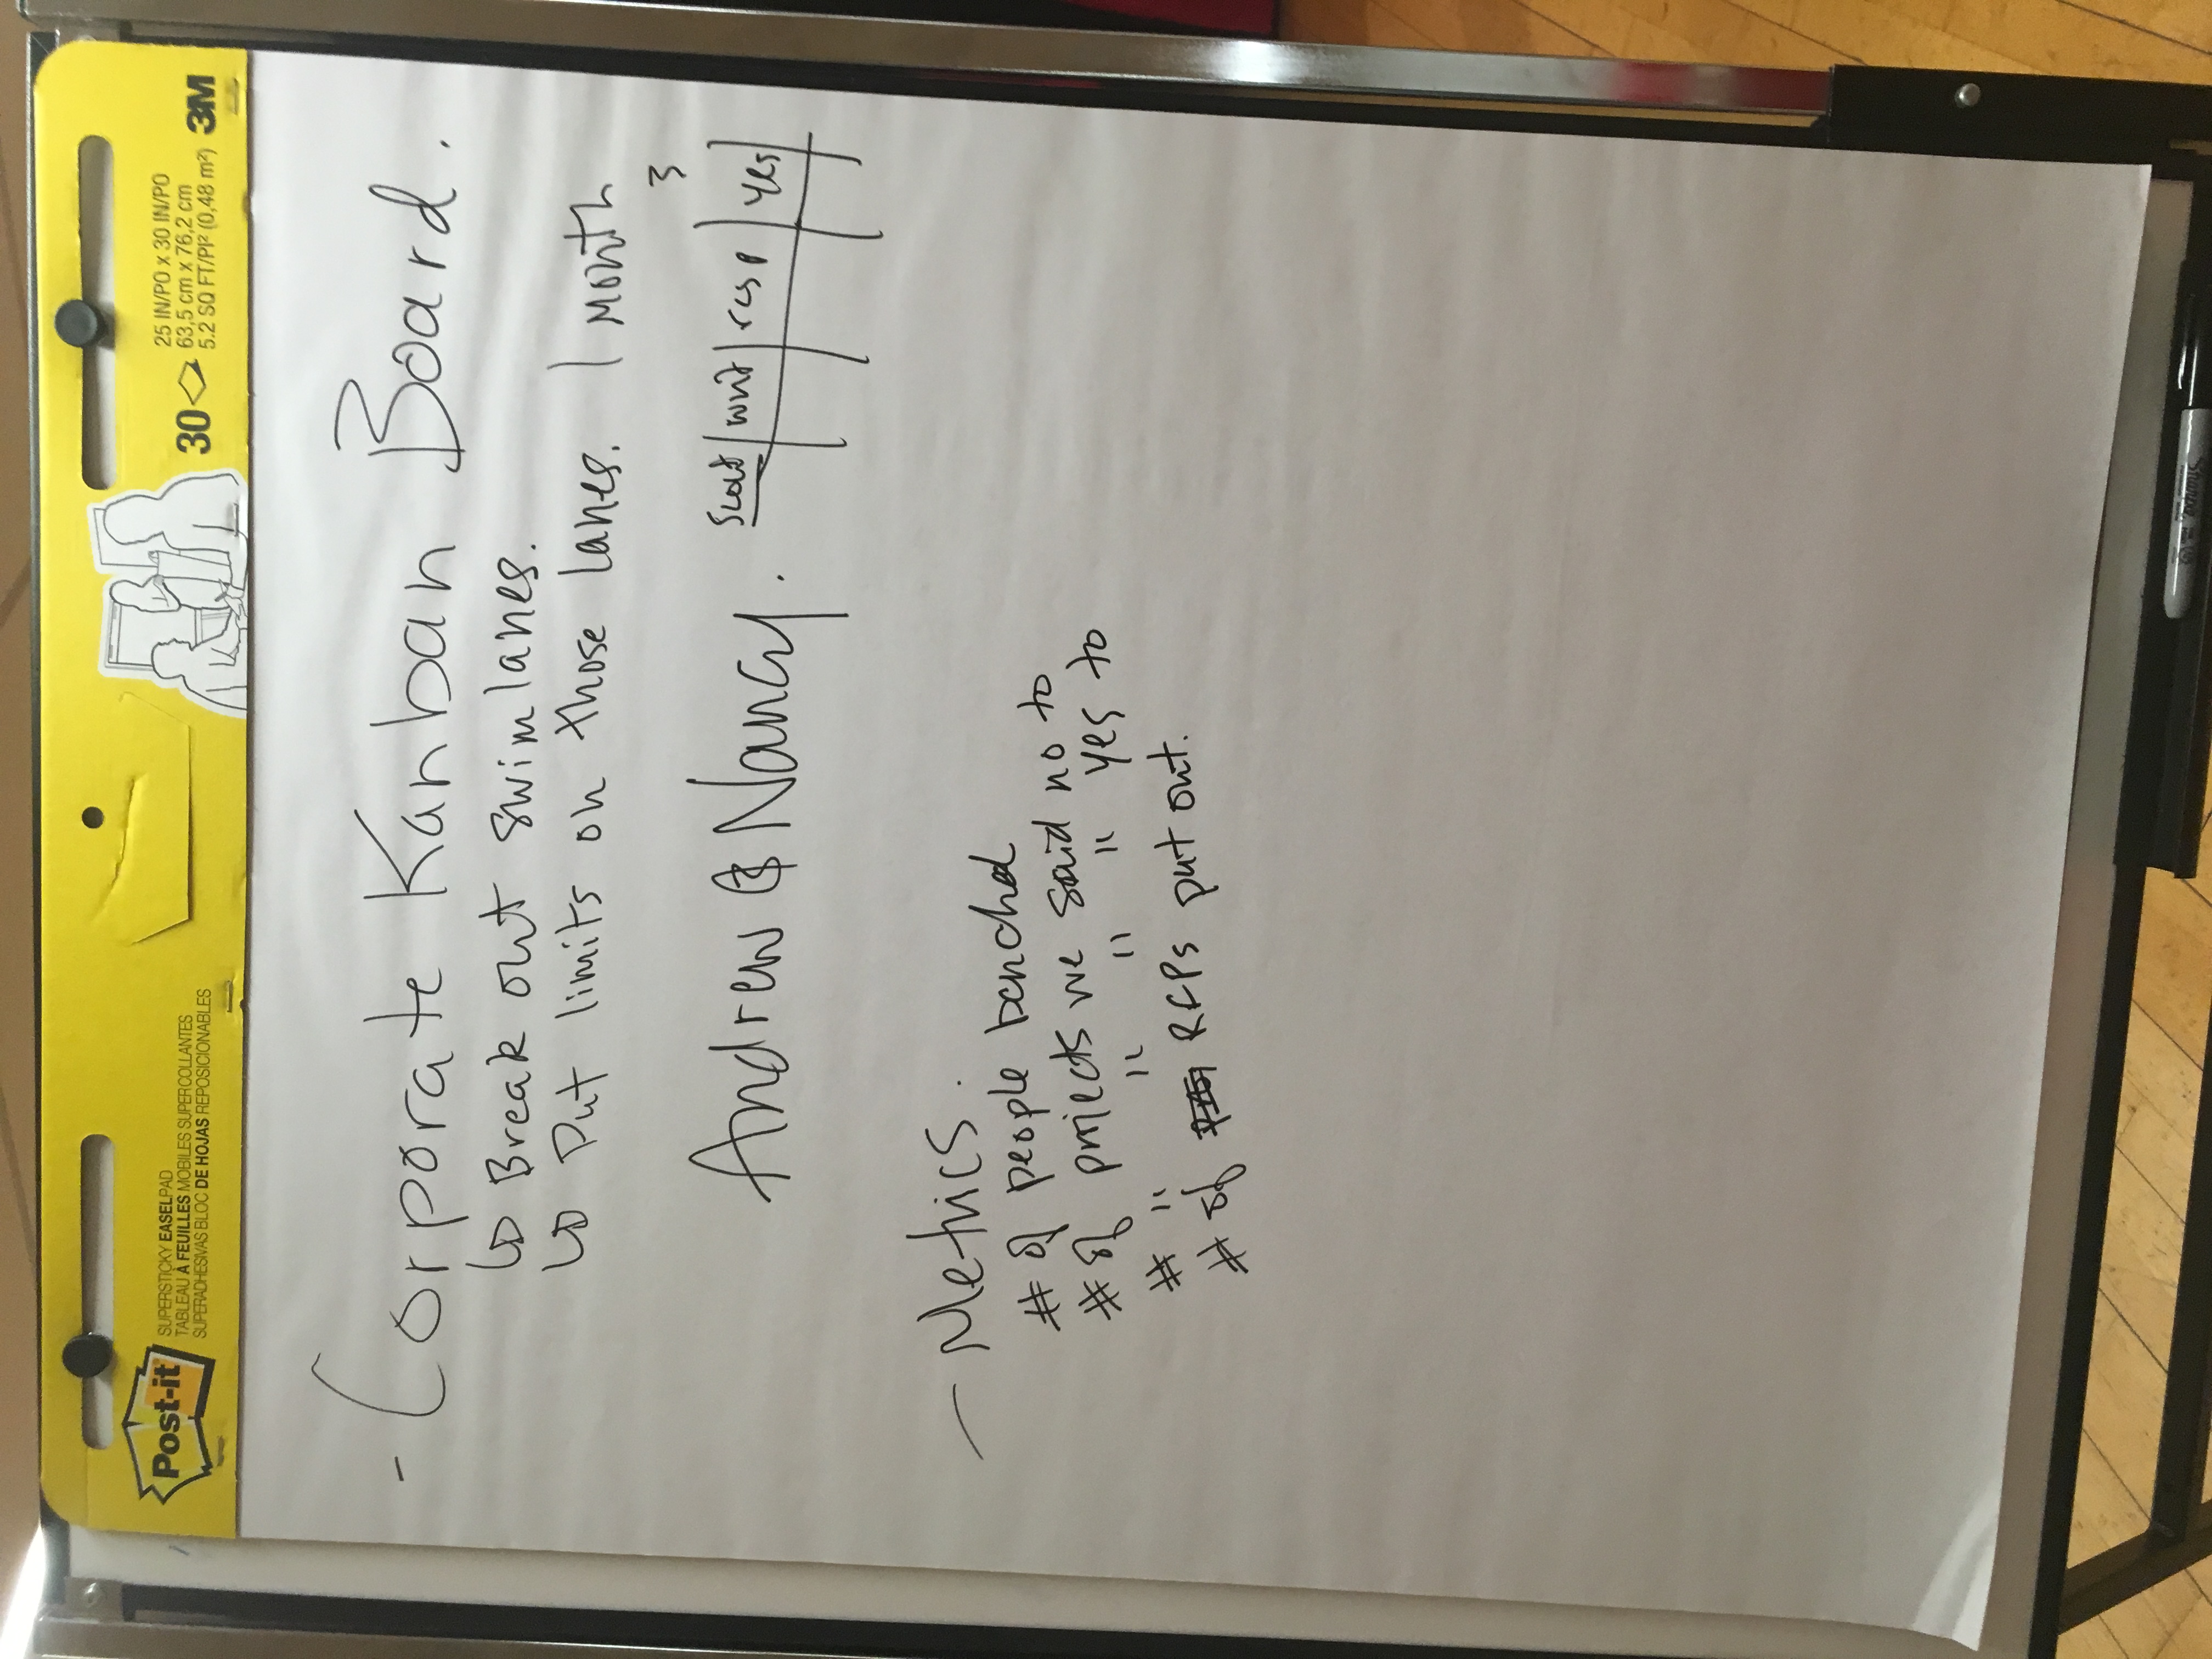 Post-it
SUPERSTICKY EASELPAD
TABLEAU À FEUILLES MOBILES SUPERCOLLANTES
SUPERADHESIVAS BLOC DE HOJAS REPOSICIONABLES
30
25 IN/PO x 30 IN/PO
63,5 cm x 76,2 cm
5.2 SQ FT/PI² (0,48 m²)
3M
- Corporate Kanban Board.
↳ Break out swimlanes.
↳ Put limits on those lanes. 1 Month
3
Andrew & Nancy.
scout | writ | resp | yes
- Metrics.
# of people benched
# of projects we said no to
# " " " " yes to
# of RFPs put out.
Sharpie